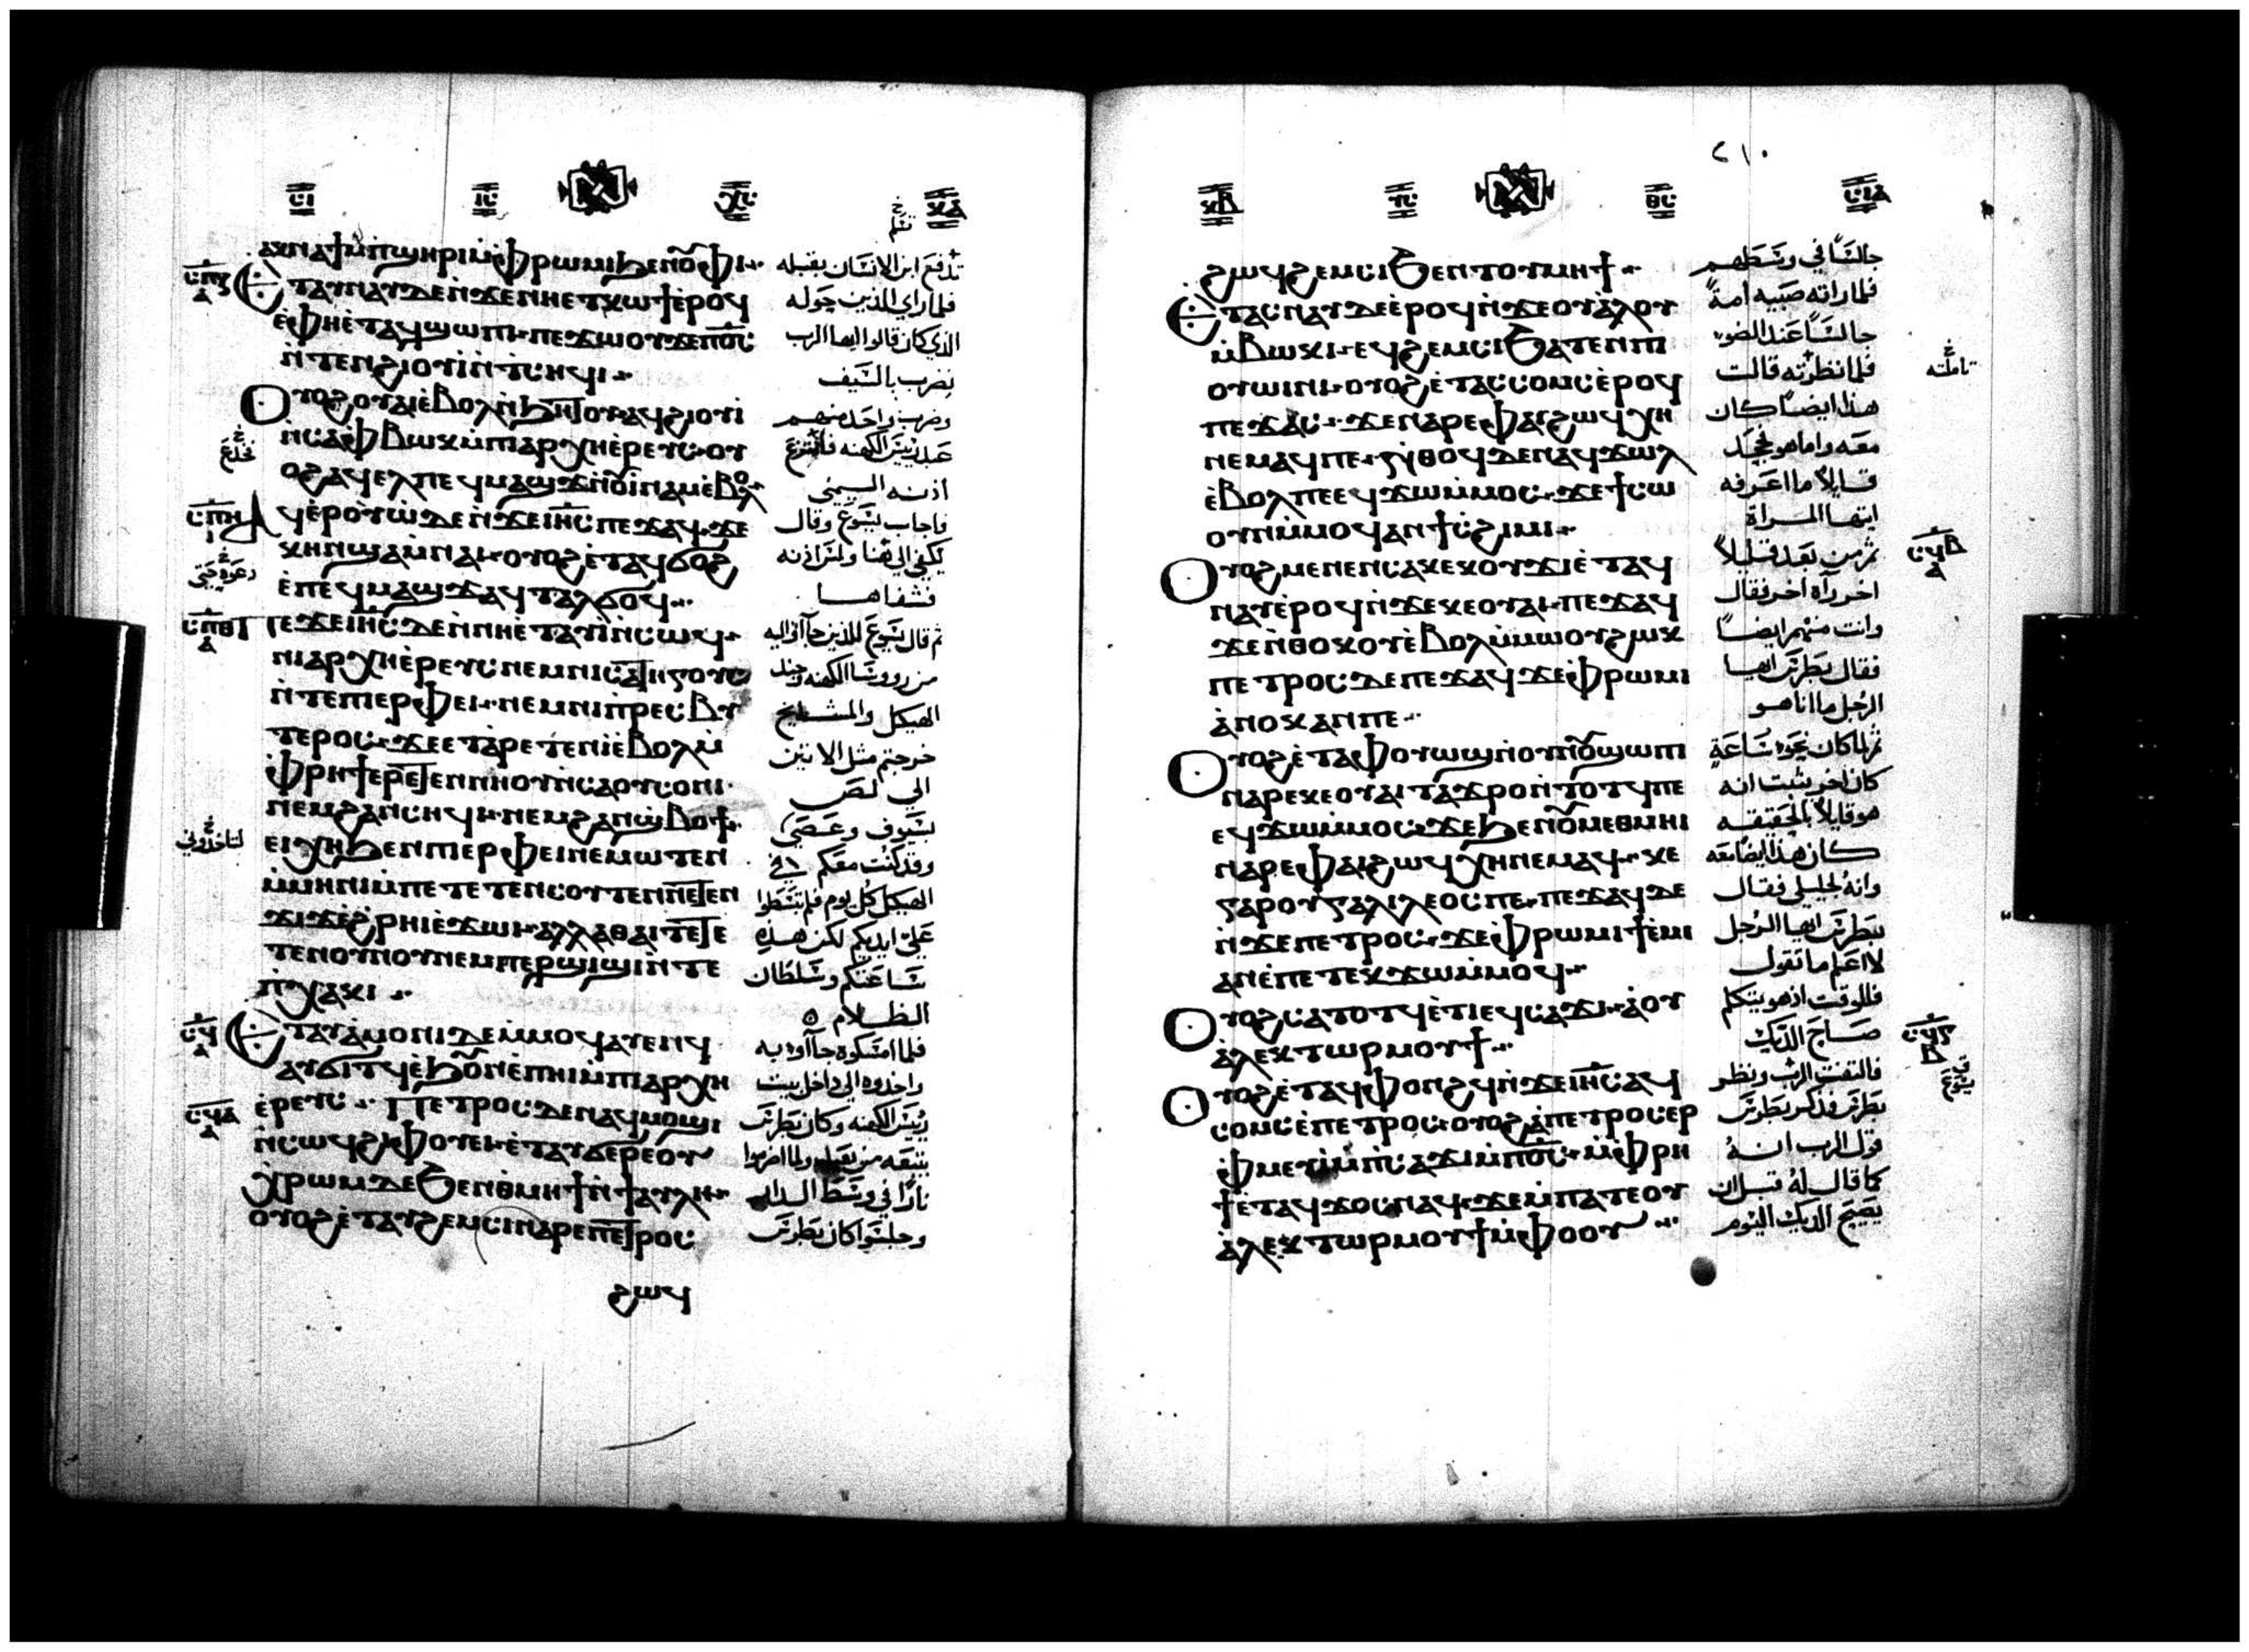 ⲭⲛⲁϯ ⲙ̀ⲡϣⲏⲣⲓ ⲙ̀ⲫⲣⲱⲙⲓ ϧⲉⲛ ⲟⲩⲫⲓ
ⲉⲧⲁⲩⲛⲁⲩ ⲇⲉ ⲛ̀ϫⲉ ⲛⲏⲉⲧⲕⲱϯ ⲉ̀ⲣⲟϥ
ⲉ̀ⲫⲏⲉ̀ⲧⲁϥϣⲱⲡⲓ ⲡⲉϫⲱⲟⲩ ϫⲉ ⲡⲟ̅ⲥ̅
ⲛ̀ⲧⲉⲛϩⲓⲟⲩⲓ ⲛ̀ⲧⲥⲏϥⲓ
ⲟⲩⲟϩ ⲟⲩⲁⲓ ⲉ̀ⲃⲟⲗ ⲛ̀ϧⲏⲧⲟⲩ ⲁϥϩⲓⲟⲩⲓ
ⲛ̀ⲥⲁ ⲫⲃⲱⲕ ⲙ̀ⲡⲓⲁⲣⲭⲏⲉ̀ⲣⲉⲩⲥ ⲟⲩ
ⲟϩ ⲁϥⲉⲗ ⲡⲉϥⲙⲁϣϫ ⲛ̀ⲟⲩⲓ̀ⲛⲁⲙ ⲉ̀ⲃⲟⲗ
ⲁϥⲉ̀ⲣⲟⲩⲱ̀ ⲇⲉ ⲛ̀ϫⲉ ⲓⲏ̅ⲥ̅ ⲡⲉϫⲁϥ ϫⲉ
ⲕⲏⲛ ϣⲁ ⲙ̀ⲛⲁⲓ ⲟⲩⲟϩ ⲉ̀ⲧⲁϥϭⲟϩ
ⲉ̀ⲡⲉϥⲙⲁϣϫ ⲁϥⲧⲁⲗϭⲟϥ
ⲡⲉϫⲉ ⲓⲏ̅ⲥ̅ ⲇⲉ ⲛ̀ⲛⲏⲉ̀ⲧⲁⲩⲓ̀ ⲛ̀ⲥⲱϥ
ⲛⲓⲁⲣⲭⲏⲉ̀ⲣⲉⲩⲥ ⲛⲉⲙ ⲛⲓⲥⲁⲧⲏⲅⲟⲩⲥ
ⲛ̀ⲧⲉ ⲡⲓⲉⲣⲫⲉⲓ ⲛⲉⲙ ⲛⲓⲡ̀ⲣⲉⲥⲃⲩ
ⲧⲉⲣⲟⲥ ϫⲉ ⲉⲧⲁ̀ⲣⲉⲧⲉⲛⲓ̀ ⲉ̀ⲃⲟⲗ ⲙ̀
ⲫⲣⲏϯ ⲉⲣⲉⲧⲉⲛⲛⲏⲟⲩ ⲛ̀ⲥⲁ ⲟⲩⲥⲟⲛⲓ
ⲛⲉⲙ ϩⲁⲛⲥⲏϥⲓ ⲛⲉⲙ ϩⲁⲛϣ̀ⲃⲟϯ
ⲉⲓⲭⲏ ϧⲉⲛ ⲡⲓⲉⲣⲫⲉⲓ ⲛⲉⲙⲱⲧⲉⲛ
ⲙ̀ⲙⲏⲛⲓ ⲙ̀ⲡⲉⲧⲉⲧⲉⲛⲥⲟⲩⲧⲉⲛ ⲛⲉⲧⲉⲛ
ϫⲓϫ ⲉ̀ϩ̀ⲣⲏⲓ ⲉ̀ϫⲱⲓ ⲁⲗⲗⲁ ⲑⲁⲓ ⲧⲉ ⲧⲉ
ⲧⲉⲛⲟⲩⲛⲟⲩ ⲛⲉⲙ ⲡⲉⲣϣⲓϣⲓ ⲛ̀ⲧⲉ
ⲡ̀ⲭⲁⲕⲓ
ⲉⲧⲁⲩⲁ̀ⲙⲟⲛⲓ ⲇⲉ ⲙ̀ⲙⲟϥ ⲁⲩⲉⲛϥ
ⲁⲩϭⲓⲧϥ ⲉ̀ϧⲟⲩⲛ ⲉ̀ⲡⲏⲓ ⲙ̀ⲡⲓⲁⲣⲭⲏ
ⲉ̀ⲣⲉⲩⲥ ⲡⲉⲧⲣⲟⲥ ⲇⲉ ⲛⲁϥⲙⲟϣⲓ
ⲛ̀ⲥⲱϥ ϩⲓⲫⲟⲩⲉⲓ ⲉ̀ⲧⲁⲩϭⲉⲣⲉ ⲟⲩ
ⲭ̀ⲣⲱⲙ ⲇⲉ ϧⲉⲛ ⲑⲙⲏϯ ⲛ̀ϯⲁⲩⲗⲏ
ⲟⲩⲟϩ ⲉ̀ⲧⲁⲩϩⲉⲙⲥⲓ ⲛⲁⲣⲉ ⲡⲉⲧⲣⲟⲥ
ϩⲱϥ
تدفع ابن الانسان بقبله
فلما راي الذين حوله
الذي كان قالوا ايها الرب
نضرب بالسيف
وضرب واحد منهم
عبد رئيس الكهنه فانتزع
اذنه اليمني
فاجاب يسوع وقال
يكفي الي هنا ولمس اذنه
فشفاها
ثم قال يسوع للذين جآآوا اليه
من رووسا الكهنه وجند
الهيكل والمشايخ
خرجتم مثل الاتين
الي لص
بسيوف وعصي
وقد كنت معكم في
الهيكل كل يوم فلم تبسطوا
علي ايديكم لكن هذه
ساعتكم وسلطان
الظلام
فلما امسكوه جآآوا به
واخذوه الي داخل بيت
رئيس الكهنه وكان بطرس
يتبعه من بعيد ولما اضرموا
نارًا في وسط الدار
وجلسوا كان بطرس
٢١٠
ϩⲱϥ ϩⲉⲙⲥⲓ ϧⲉⲛ ⲧⲟⲩⲙⲏϯ
ⲉⲧⲁⲥⲛⲁⲩ ⲇⲉ ⲉ̀ⲣⲟϥ ⲛ̀ϫⲉ ⲟⲩⲁ̀ⲗⲟⲩ
ⲙ̀ⲃⲱⲕⲓ ⲉϥϩⲉⲙⲥⲓ ϧⲁⲧⲉⲛ ⲡⲓ
ⲟⲩⲱⲓⲛⲓ ⲟⲩⲟϩ ⲉ̀ⲧⲁⲥⲥⲟⲙⲥ ⲉ̀ⲣⲟϥ
ⲡⲉϫⲁⲥ ϫⲉ ⲛⲁⲣⲉ ⲫⲁⲓ ϩⲱϥ ⲭⲏ
ⲛⲉⲙⲁϥ ⲡⲉ ⲛ̀ⲑⲟϥ ⲇⲉ ⲛⲁϥϫⲱⲗ
ⲉ̀ⲃⲟⲗ ⲡⲉ ⲉϥϫⲱ ⲙ̀ⲙⲟⲥ ϫⲉ ϯⲥⲱ
ⲟⲩⲛ ⲙ̀ⲙⲟϥ ⲁⲛ ϯⲥ̀ϩⲓⲙⲓ
ⲟⲩⲟϩ ⲙⲉⲛⲉⲛⲥⲁ ⲕⲉⲕⲟⲩϫⲓ ⲉ̀ⲧⲁϥ
ⲛⲁⲩ ⲉ̀ⲣⲟϥ ⲛ̀ϫⲉ ⲕⲉⲟⲩⲁⲓ ⲡⲉϫⲁϥ
ϫⲉ ⲛ̀ⲑⲟⲕ ⲟⲩⲉ̀ⲃⲟⲗ ⲙ̀ⲙⲱⲟⲩ ϩⲱⲕ
ⲡⲉⲧⲣⲟⲥ ⲇⲉ ⲡⲉϫⲁϥ ϫⲉ ⲫ̀ⲣⲱⲙⲓ
ⲁ̀ⲛⲟⲕ ⲁⲛ ⲡⲉ
ⲟⲩⲟϩ ⲉ̀ⲧⲁ ⲫⲟⲩⲱϣ ⲛ̀ⲟⲩⲛⲟⲩ ϣⲱⲡⲓ
ⲛⲁⲣⲉ ⲕⲉⲟⲩⲁⲓ ⲧⲁϫⲣⲟ ⲛ̀ⲧⲟⲧϥ ⲡⲉ
ⲉϥϫⲱ ⲙ̀ⲙⲟⲥ ϫⲉ ϧⲉⲛ ⲟⲩⲙⲉⲑⲙⲏⲓ
ⲛⲁⲣⲉ ⲫⲁⲓ ϩⲱϥ ⲭⲏ ⲛⲉⲙⲁϥ ⲕⲉ
ⲅⲁⲣ ⲟⲩⲅⲁⲗⲓⲗⲉⲟⲥ ⲡⲉ ⲡⲉϫⲁϥ ⲇⲉ
ⲛ̀ϫⲉ ⲡⲉⲧⲣⲟⲥ ϫⲉ ⲫ̀ⲣⲱⲙⲓ ϯⲉ̀ⲙⲓ
ⲁⲛ ⲉ̀ⲡⲉⲧⲉⲕϫⲱ ⲙ̀ⲙⲟϥ
ⲟⲩⲟϩ ⲥⲁⲧⲟⲧϥ ⲉ̀ⲧⲓ ⲉϥⲥⲁϫⲓ ⲁ̀ ⲟⲩ
ⲁ̀ⲗⲉⲕⲧⲱⲣ ⲙⲟⲩϯ
ⲟⲩⲟϩ ⲉ̀ⲧⲁϥⲫⲟⲛϩϥ ⲛ̀ϫⲉ ⲓⲏ̅ⲥ̅ ⲁϥ
ⲥⲟⲙⲥ ⲉ̀ⲡⲉⲧⲣⲟⲥ ⲟⲩⲟϩ ⲁ̀ ⲡⲉⲧⲣⲟⲥ ⲉⲣ
ⲫ̀ⲙⲉⲩⲓ̀ ⲙ̀ⲡⲥⲁϫⲓ ⲙ̀ⲡⲟ̅ⲥ̅ ⲙ̀ⲫ̀ⲣⲏ
ϯ ⲉ̀ⲧⲁϥϫⲟⲥ ⲛⲁϥ ϫⲉ ⲙ̀ⲡⲁⲧⲉ ⲟⲩ
ⲁ̀ⲗⲉⲕⲧⲱⲣ ⲙⲟⲩϯ ⲙ̀ⲫⲟⲟⲩ
جالسًا في وسطهم
فلما راته صبيه امةً
جالسًا عند الضو
فلما نظرته قالت
هذا ايضًا كان
معه واما هو فجحد
قايلاً ما اعرفه
ايتها المراة
ثم من بعد قليلاً
اخر رآه اخر فقال
وانت منهم ايضًا
فقال بطرس ايها
الرجل ما انا هو
ثم لما كان نحو ساعةٍ
كان اخر يثبت انه
هو قايلاً بالحقيقه
كان هذا ايضًا معه
وانه لجليلي فقال
بطرس ايها الرجل
لا اعلم ما تقول
فللوقت اذ هو يتكلم
صاح الديك
فالتفت الرب ونظر
بطرس فذكر بطرس
قول الرب انه
كما قال له قبل ان
يصيح الديك اليوم
تاملته